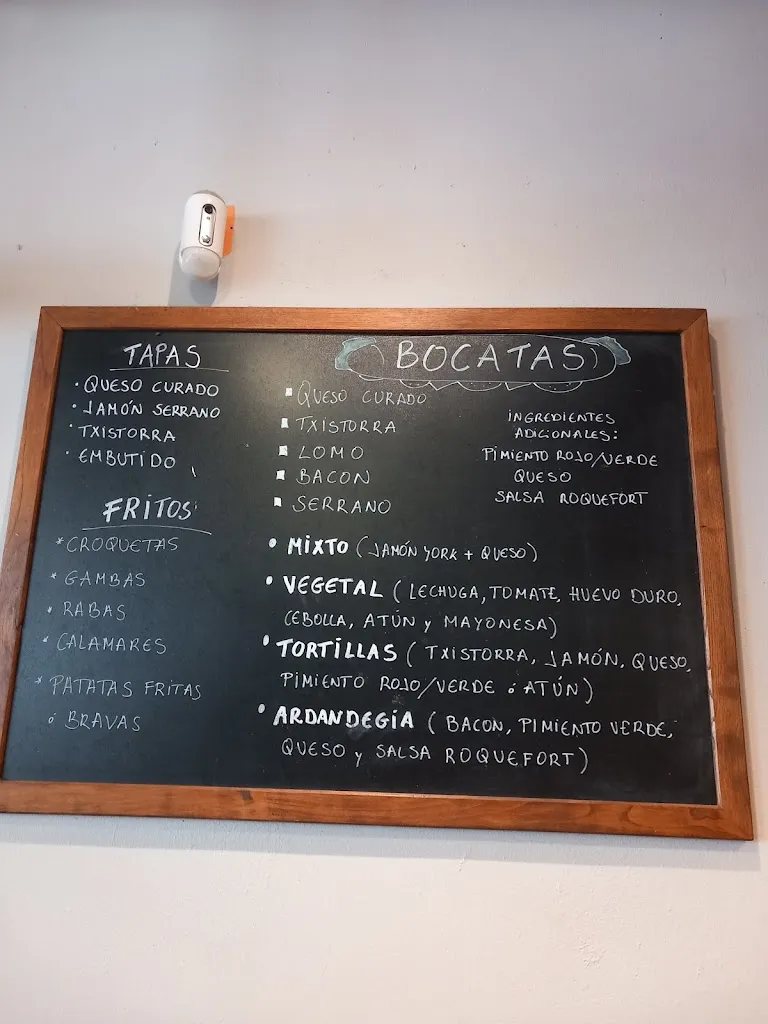 TAPAS
• QUESO CURADO
• JAMÓN SERRANO
• TXISTORRA
• EMBUTIDO
FRITOS
* CROQUETAS
* GAMBAS
* RABAS
* CALAMARES
* PATATAS FRITAS
ó BRAVAS
BOCATAS
▪ QUESO CURADO
▪ TXISTORRA
▪ LOMO
▪ BACON
▪ SERRANO
INGREDIENTES
ADICIONALES:
PIMIENTO ROJO/VERDE
QUESO
SALSA ROQUEFORT
• MIXTO (JAMÓN YORK + QUESO)
• VEGETAL (LECHUGA, TOMATE, HUEVO DURO,
CEBOLLA, ATÚN y MAYONESA)
• TORTILLAS (TXISTORRA, JAMÓN, QUESO,
PIMIENTO ROJO/VERDE ó ATÚN)
• ARDANDEGIA (BACON, PIMIENTO VERDE,
QUESO y SALSA ROQUEFORT)